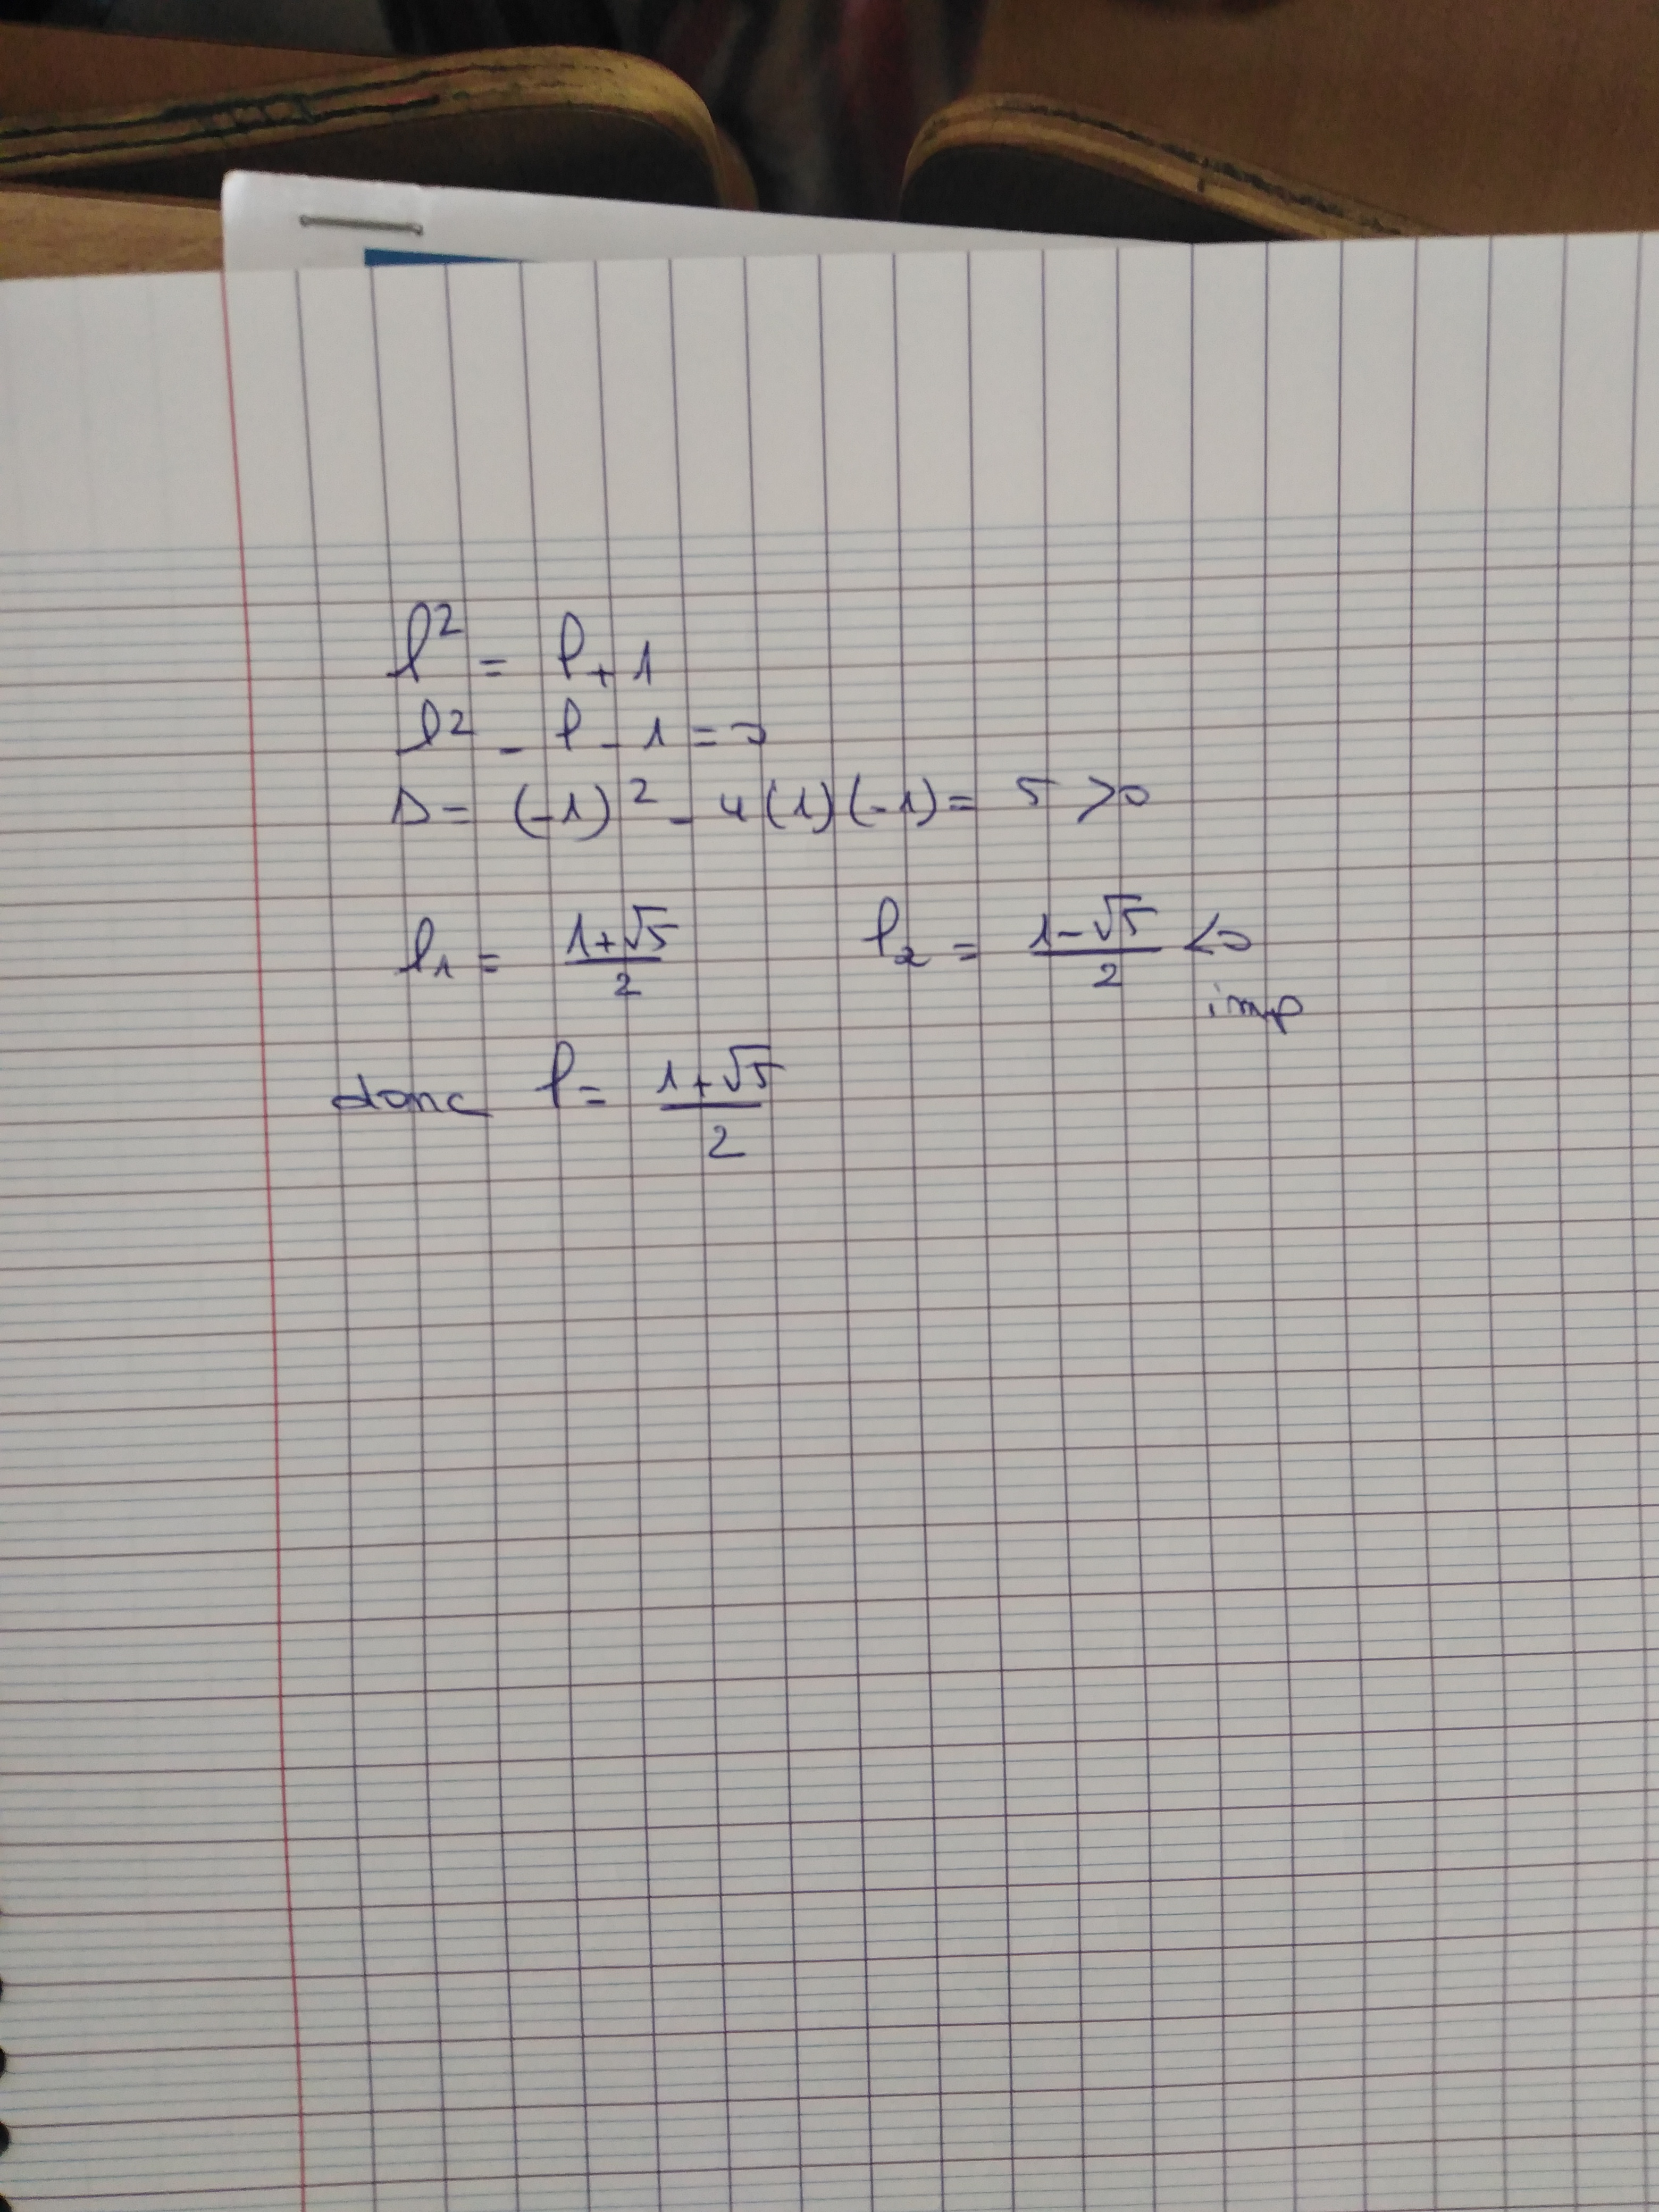 l² = l + 1
l² - l - 1 = 0
Δ = (-1)² - 4(1)(-1) = 5 > 0
l₁ = (1+√5)/2 l₂ = (1-√5)/2 < 0
imp
donc l = (1+√5)/2